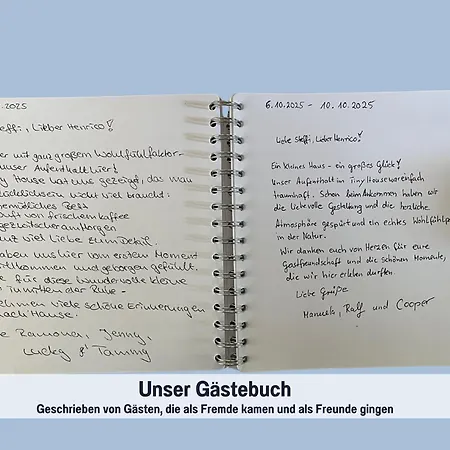 .2025
Steffi, Lieber Henrico!
er mit ganz großem Wohlfühlfaktor-
unser Aufenthalt hier!
y House hat uns gezeigt, das man
Glücklichsein nicht viel braucht:
gemütliches Bett
Duft von frischem Kaffee
am Morgen
und viel Liebe zum Detail.
haben uns hier vom ersten Moment
willkommen und geborgen gefühlt.
e für diese wundervolle kleine
inmitten der Ruhe -
nehmen viele schöne Erinnerungen
nach Hause.
e Ramona, Jenny,
Lucky & Tammy
6.10.2025 - 10.10.2025
Liebe Steffi, Lieber Henrico!
Ein kleines Haus - ein großes Glück!
Unser Aufenthalt im Tiny House war einfach
traumhaft. Schon beim Ankommen haben wir
die liebevolle Gestaltung und die herzliche
Atmosphäre gespürt und ein echtes Wohlfühlpa
in der Natur.
Wir danken euch von Herzen für eure
Gastfreundschaft und die schönen Momente,
die wir hier erleben durften.
Liebe Grüße
Manuela, Ralf und Cooper
Unser Gästebuch
Geschrieben von Gästen, die als Fremde kamen und als Freunde gingen